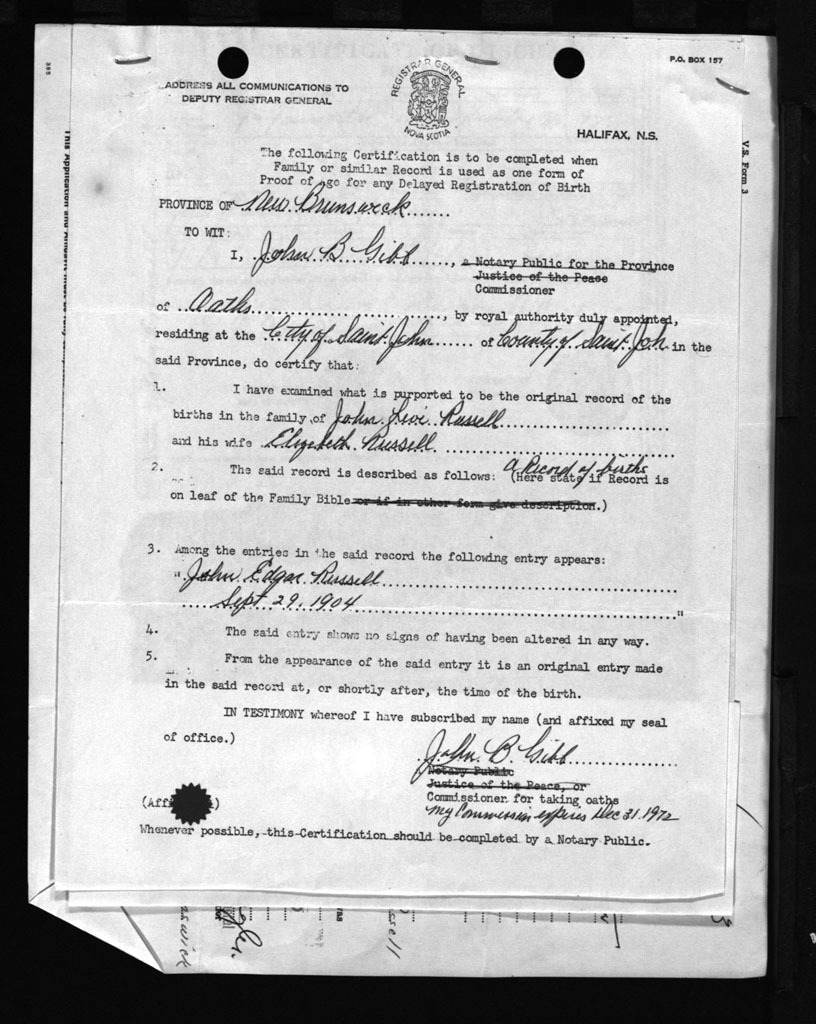 P.O. BOX 157
ADDRESS ALL COMMUNICATIONS TO
DEPUTY REGISTRAR GENERAL
REGISTRAR GENERAL
NOVA SCOTIA
HALIFAX, N.S.
V.S. Form 3
The following Certification is to be completed when
Family or similar Record is used as one form of
Proof of Age for any Delayed Registration of Birth
PROVINCE OF New Brunswick
TO WIT:
I, John B Gibb, a Notary Public for the Province
Justice of the Peace
Commissioner
of Oaths, by royal authority duly appointed,
residing at the City of Saint John of County of Saint Joh in the
said Province, do certify that:
1. I have examined what is purported to be the original record of the
births in the family of John Levi Russell
and his wife Elizabeth Russell
a Record of births
2. The said record is described as follows: (Here state if Record is
on leaf of the Family Bible or if in other form give description.)
3. Among the entries in the said record the following entry appears:
"John Edgar Russell
Sept 29, 1904"
4. The said entry shows no signs of having been altered in any way.
5. From the appearance of the said entry it is an original entry made
in the said record at, or shortly after, the time of the birth.
IN TESTIMONY whereof I have subscribed my name (and affixed my seal
of office.)
John B. Gibb
Notary Public
Justice of the Peace, or
Commissioner for taking oaths
My Commission expires Dec 31, 1972
(Affi
Whenever possible, this Certification should be completed by a Notary Public.